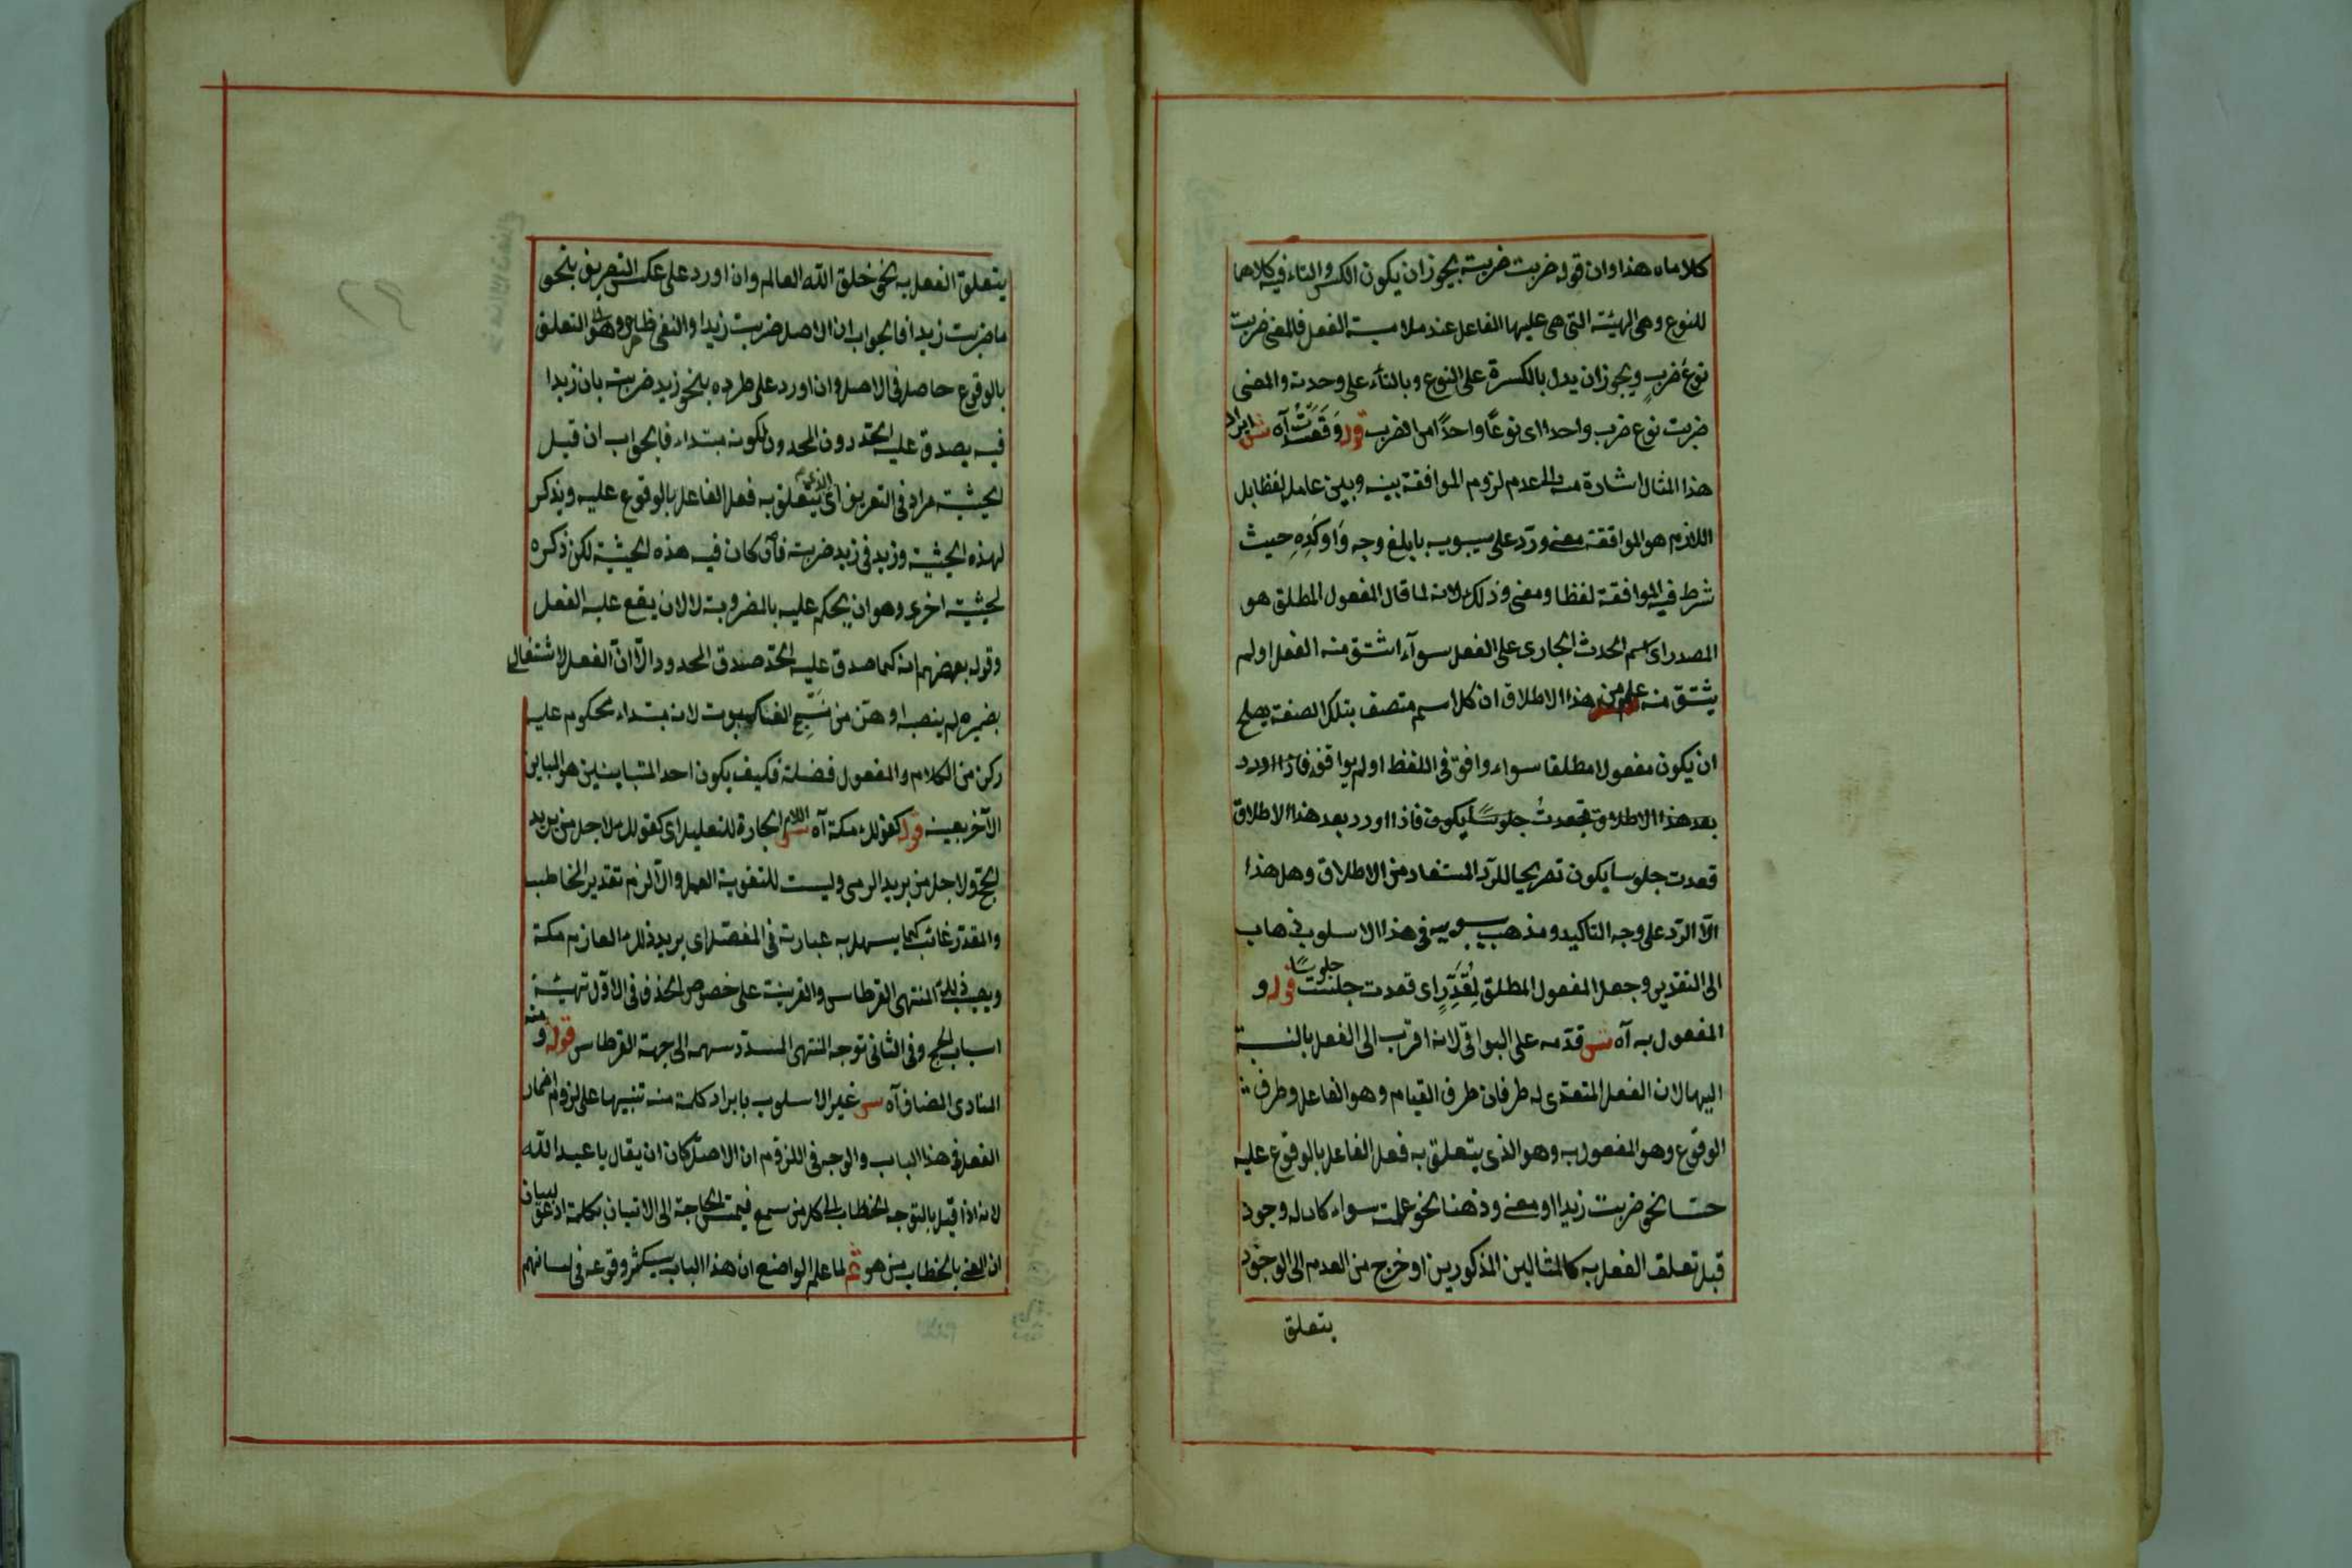 كلاماه هذا وان قوله ضربت ضربة يجوز ان يكون الكسر والتاء فيه كلاهما
للنوع وهى الهيئة التى هى عليها الفاعل عند ملامسة الفعل فالمعنى ضربت
نوع ضرب ويجوز ان يدل بالكسرة على النوع وبالتاء على وحدته والمعنى
ضربت نوع ضرب واحد اى نوعًا واحدًا من الضرب قوله وَقَعَدْتُ آه ش ايراد
هذا المثال اشارة منه الى عدم لزوم الموافقة بينه وبين عامله لفظا بل
اللازم هو الموافقة معنى وردّ على سيبويه بابلغ وجه وَاوكَدِهِ حيث
شرط فيه الموافقة لفظا ومعنى وذلك لانه لما قال المفعول المطلق هو
المصدر اى اسم الحدث الجارى على الفعل سوآء اشتق منه الفعل اولم
يشتق منه علم من هذا الاطلاق ان كل اسم متصف بتلك الصفة يصلح
ان يكون مفعولا مطلقا سواء وافق فى اللفظ او لم يوافق فاذا اورد
بعد هذا الاطلاق قعدتُ جلوسًا يكون فاذا اورد بعد هذا الاطلاق
قعدت جلوسا يكون تصريحا للردّ المستفاد من الاطلاق وهل هذا
الّا الردّ على وجه التاكيد ومذهب سيبويه فى هذا الاسلوب ذهاب
الى التقدير وجعل المفعول المطلق لِمُقَدَّرٍ اى قعدت جلست جلوسًا قوله و
المفعول به آه ش قدّمه على البواقى لانه اقرب الى الفعل بالنسبة
اليها لان الفعل المتعدى له طرفان طرف القيام وهو الفاعل وطرف
الوقوع وهو المفعول به وهو الذى يتعلق به فعل الفاعل بالوقوع عليه
حسّا نحو ضربت زيدا او معنى وذهنا نحو علمت سواء كان له وجود
قبل تعلق الفعل به كالمثالين المذكورين او خرج من العدم الى الوجود
يتعلق
يتعلق الفعل به نحو خلق الله العالم وان اورد على عكس التعريف بنحو
ما ضربت زيدا فالجواب ان الاصل ضربت زيدا والنفى طار وهو التعلق
بالوقوع حاصل فى الاصل وان اورد على طرده بنحو زيد ضربته بان زيدا
فيه يصدق عليه الحدّ دون المحدود لكونه مبتداء فالجواب ان قيل
الحيثية مراد فى التعريف اى الذى يتعلق به فعل الفاعل بالوقوع عليه ويذكر
لهذه الحيثية وزيد فى زيد ضربته فان كان فيه هذه الحيثية لكن ذكره
لحيثية اخرى وهو ان يحكم عليه بالمضروبية لا لان يقع عليه الفعل
وقول بعضهم انه كما صدق عليه الحدّ صدق المحدود الّا انّ الفعل لاشتغاله
بضميره لم ينصبه اوهن من نَسْجِ العنكبوت لانه مبتداء محكوم عليه
ركن من الكلام والمفعول فضلة فكيف يكون احد المتباينين هو المباين
الآخر بعينه قوله كقولك مكة آه ش اللام الجارة للتعليل اى كقولك لاجل من يريد
الحج ولاجل من يريد الرمى وليست للتقوية العمل والّا لزم تقدير المخاطب
والمقدّر غائب كما يسهل به عبارته فى المفصّل اى يريد ذلك العازم مكة
ويصيب ذلك المنتهى القرطاس والقرينة على خصوص الحذف فى الاول تهيئة
اسباب الحج وفى الثانى توجه المنتهى المسدّد سهمه الى جهة القرطاس قوله ومنه
المنادى المضاف آه ش غيّر الاسلوب بايراد كلمة منه تنبيها على لزوم اضمار
الفعل فى هذا الباب والوجه فى اللزوم ان الاصل كان ان يقال يا عبد الله
لانه اذا قيل يا لتوجه الخطاب الى كل من سمع فيمس الحاجة الى الاتيان بكلمة ادعو لبيان
ان المعنى بالخطاب من هو ثمّ لما علم الواضع ان هذا الباب سيكثر وقوعه فى لسانهم